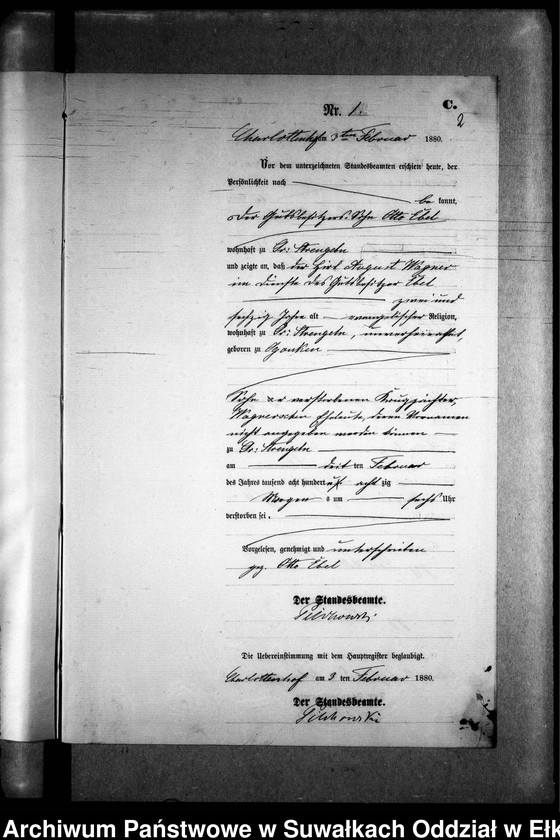 Nr. 1.
C.
2
Charlottenhof am 3ten Februar 1880.
Vor dem unterzeichneten Standesbeamten erschien heute, der
Persönlichkeit nach
be kannt,
der Gutsbesitzers Sohn Otto Ebel
wohnhaft zu Gr: Strengeln
und zeigte an, daß der Hirt August Wagner
im Dienste des Gutsbesitzer Ebel
zwei und
sechzig Jahre alt evangelischer Religion,
wohnhaft zu Gr: Strengeln, unverheirathet,
geboren zu
Sohn der verstorbenen Krugpächter
Wagnerschen Eheleute, deren Vornamen
nicht angegeben werden können
zu Gr: Strengeln
am ten Februar
des Jahres tausend acht hundert und acht zig
Morgens um sechs Uhr
verstorben sei.
Vorgelesen, genehmigt und unterschrieben
gez. Otto Ebel
Der Standesbeamte.
Die Uebereinstimmung mit dem Hauptregister beglaubigt.
Charlottenhof am 3 ten Februar 1880.
Der Standesbeamte.
Archiwum Państwowe w Suwałkach Oddział w Ełk